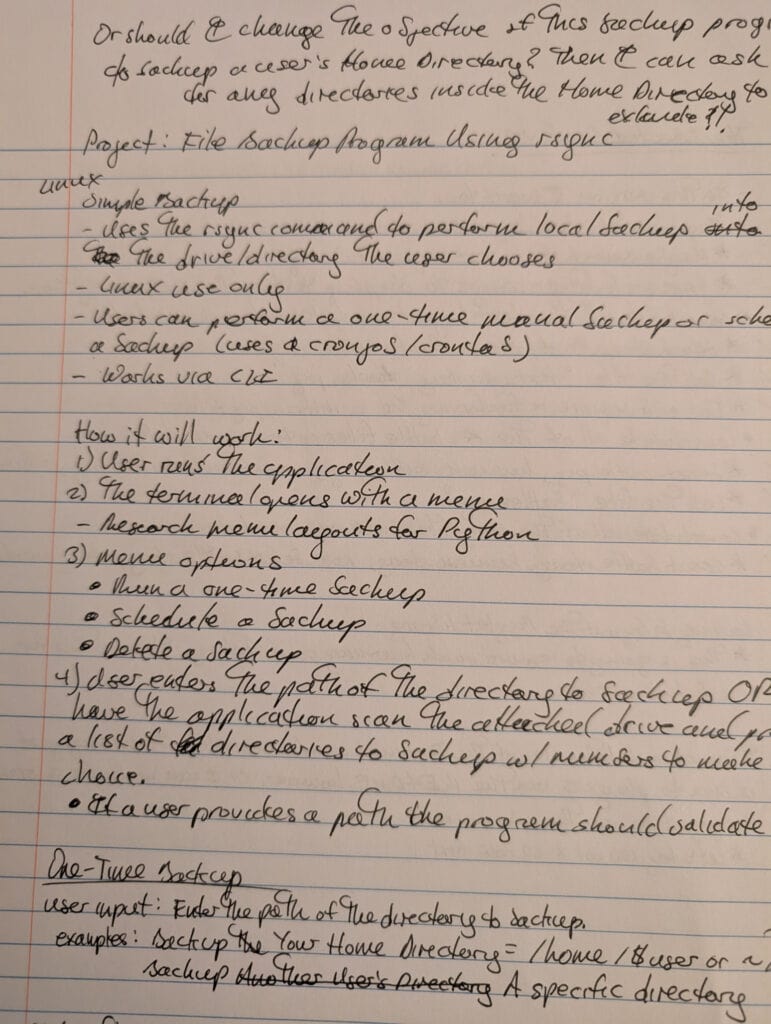 Or should I change the objective of this backup progr
to backup a user's Home Directory? Then I can ask
for any directories inside the Home Directory to
exclude??
Project: File Backup Program Using rsync
Linux
Simple Backup
- Uses the rsync command to perform local backup into
the drive/directory the user chooses
- Linux use only
- Users can perform a one-time manual backup or sche
a backup (uses a cronjob/crontab)
- Works via CLI
How it will work:
1) User runs the application
2) The terminal opens with a menu
- Research menu layouts for Python
3) Menu options
• Run a one-time backup
• Schedule a backup
• Delete a backup
4) User enters the path of the directory to backup OR
have the application scan the attached drive and pr
a list of directories to backup w/ numbers to make
choice.
• If a user provides a path the program should validate
One-Time Backup
user input: Enter the path of the directory to backup.
examples: Backup the Your Home Directory = /home/$user or ~/
backup Another User's Directory A specific directory